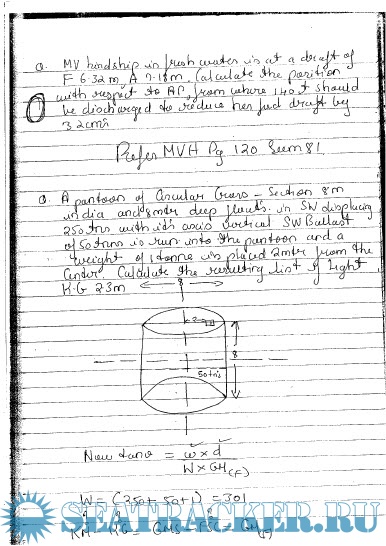 Q. MV hindship in fresh water is at a draft of
F 6.32m, A 7.18m, Calculate the position
with respect to AP, from where 140t should
be discharged to reduce her fwd draft by
32cms
Refer MVH Pg 120 Seem 81
Q. A pantoon of Circular Cross - Section 8m
in dia and 8mtr deep floats in SW displacing
250tns with its axis vertical SW Ballast
of 50tnns is run into the pantoon and a
weight of 1tonne is placed 2mtr from the
Center. Calculate the resulting list if light
K.G 2.3m
8
2m
8
50tns
Now tanθ = w x d
W x GM(F)
W = (250 + 50 + 1) = 301
KM - KG = GMS - FSC = GM(F)
SEATRACKER.RU